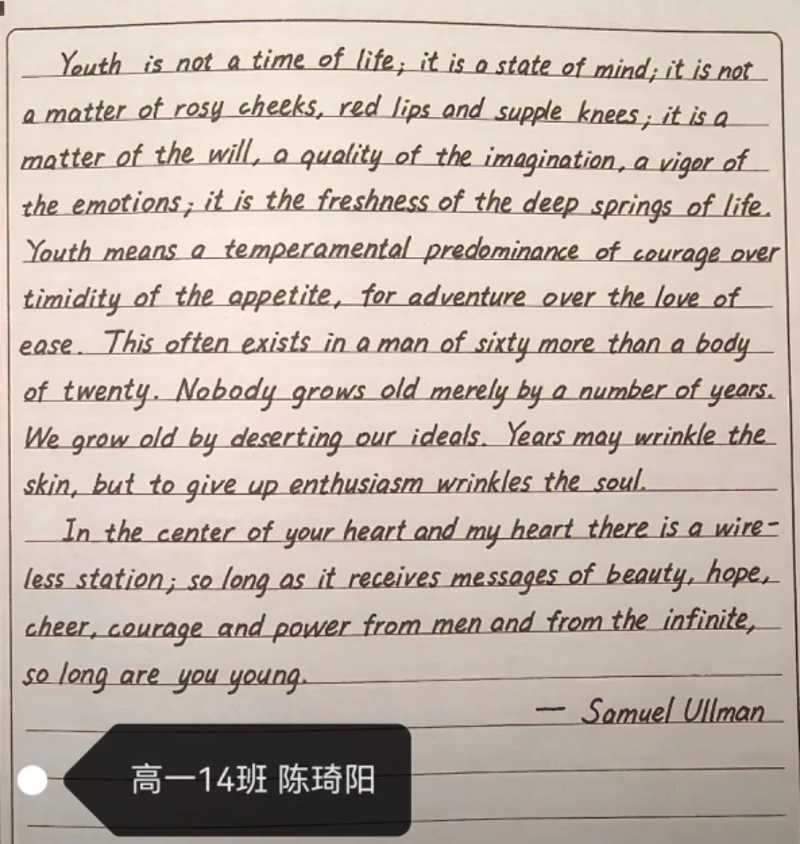 Youth is not a time of life; it is a state of mind; it is not
a matter of rosy cheeks, red lips and supple knees; it is a
matter of the will, a quality of the imagination, a vigor of
the emotions; it is the freshness of the deep springs of life.
Youth means a temperamental predominance of courage over
timidity of the appetite, for adventure over the love of
ease. This often exists in a man of sixty more than a body
of twenty. Nobody grows old merely by a number of years.
We grow old by deserting our ideals. Years may wrinkle the
skin, but to give up enthusiasm wrinkles the soul.
In the center of your heart and my heart there is a wire-
less station; so long as it receives messages of beauty, hope,
cheer, courage and power from men and from the infinite,
so long are you young.
— Samuel Ullman
高一14班 陈琦阳